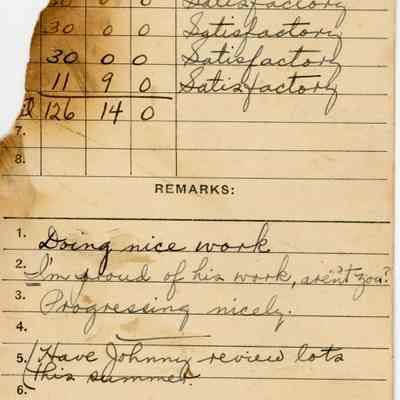 30 0 0 Satisfactory
30 0 0 Satisfactory
30 0 0 Satisfactory
11 9 0 Satisfactory
126 14 0
7.
8.
REMARKS:
1. Doing nice work
2. I'm proud of his work, aren't you?
3. Progressing nicely.
4.
5. (Have Johnny review lots
6. (this summer.